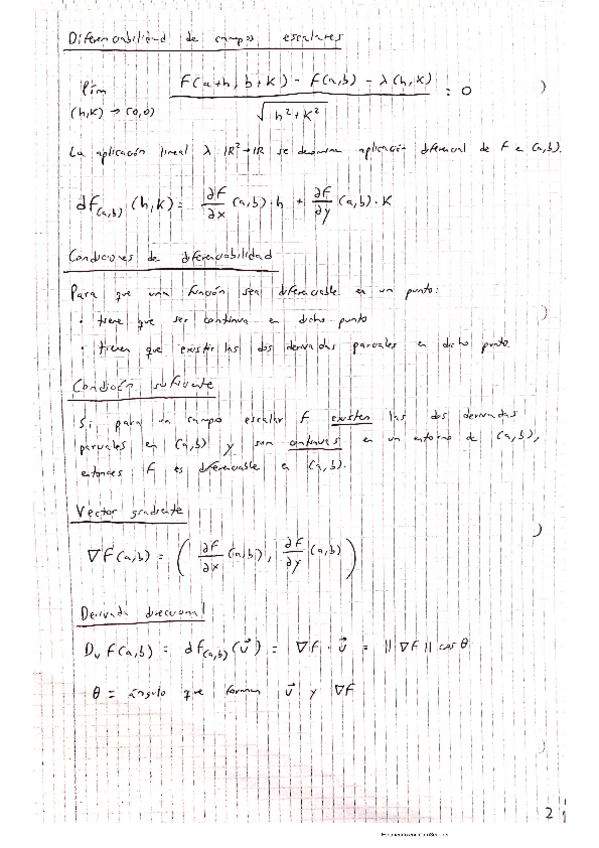 Diferenciabilidad de campos escalares
lím F(a+h, b+k) - F(a,b) - λ(h,k) = 0
(h,k) → (0,0) √h²+k²
La aplicación lineal λ ℝ²→ℝ se denomina aplicación diferencial de F en (a,b).
dF(a,b) (h,k) = ∂F/∂x (a,b)·h + ∂F/∂y (a,b)·k
Condiciones de diferenciabilidad
Para que una función sea diferenciable en un punto:
· tiene que ser continua en dicho punto
· tienen que existir las dos derivadas parciales en dicho punto.
Condición suficiente
Si para un campo escalar F existen las dos derivadas
parciales en (a,b) y son continuas en un entorno de (a,b),
entonces F es diferenciable en (a,b).
Vector gradiente
∇F(a,b) = ( ∂F/∂x (a,b), ∂F/∂y (a,b) )
Derivada direccional
Dv F(a,b) = dF(a,b) (v⃗) = ∇F · v⃗ = ||∇F|| cos θ
θ = ángulo que forman v⃗ y ∇F
2